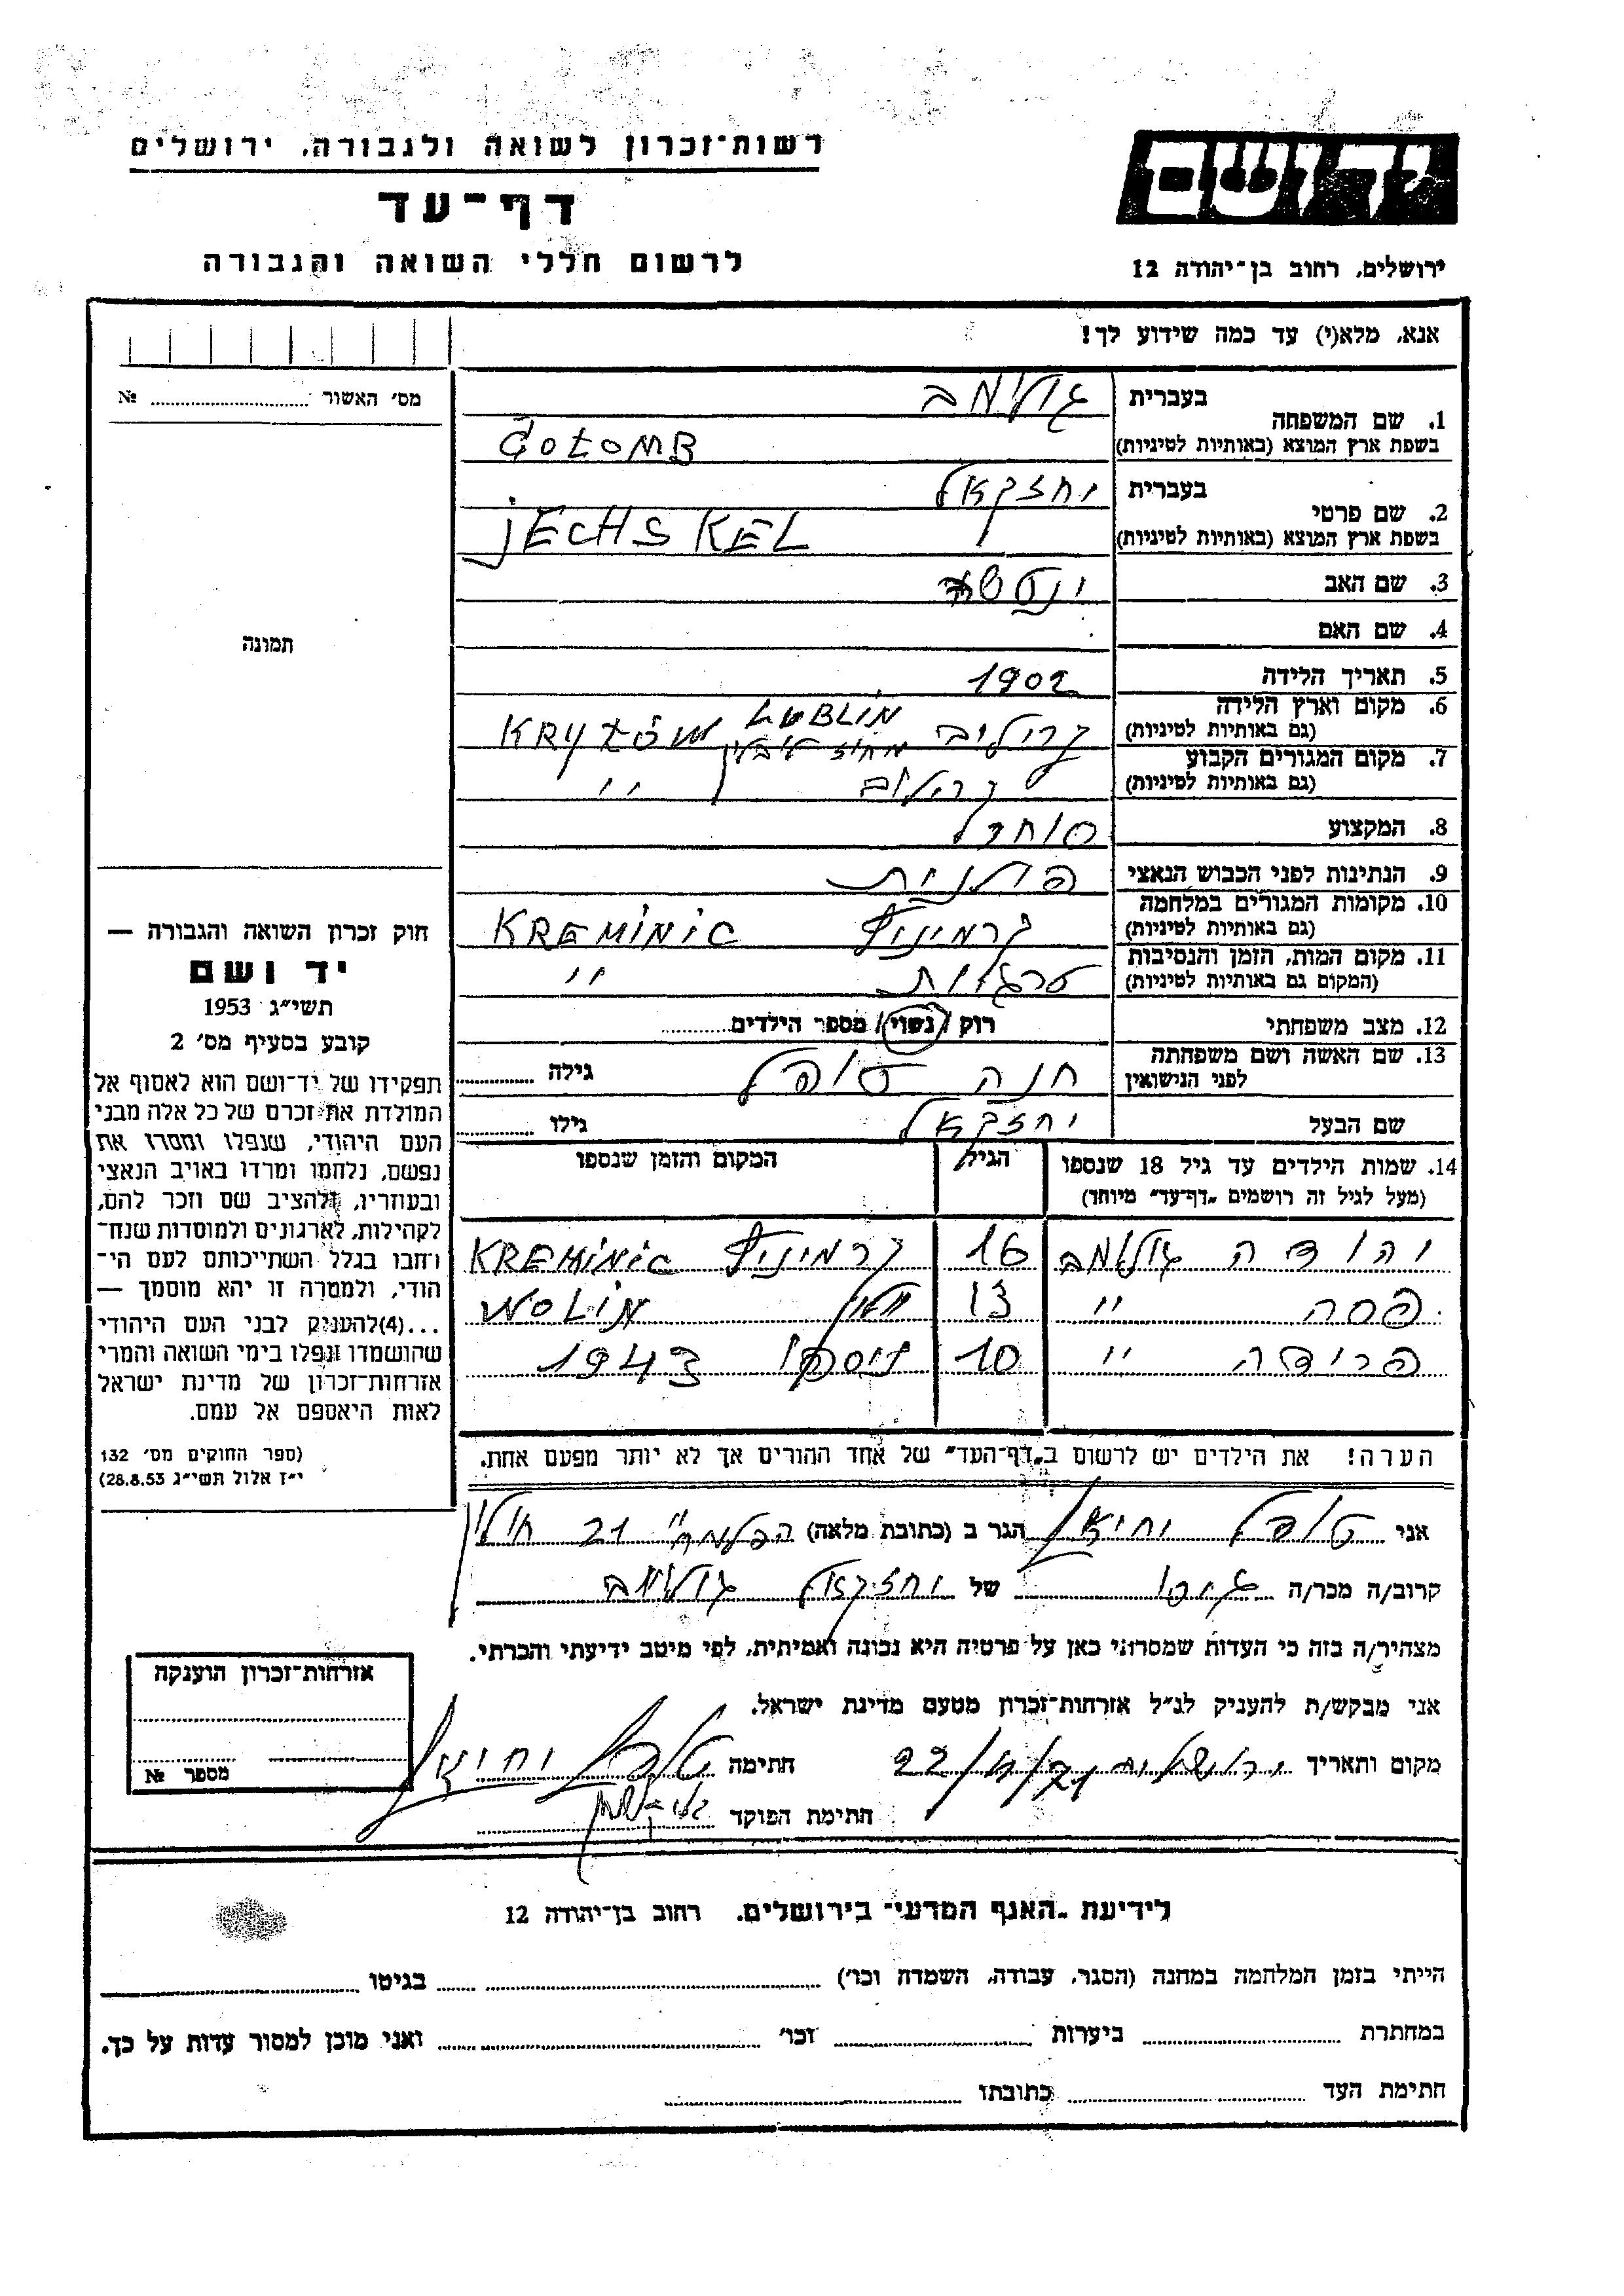 רשות־זכרון לשואה ולגבורה, ירושלים
דף־עד
לרשום חללי השואה והגבורה
יד ושם
ירושלים, רחוב בן־יהודה 12
אנא, מלא(י) עד כמה שידוע לך!
מס׳ האשור № 
תמונה
1. שם המשפחה בעברית גולומב
בשפת ארץ המוצא (באותיות לטיניות) GOŁOMB
2. שם פרטי בעברית יחזקאל
בשפת ארץ המוצא (באותיות לטיניות) JECHSKEL
3. שם האב
4. שם האם
5. תאריך הלידה 1902
6. מקום וארץ הלידה (גם באותיות לטיניות) קרילוב מחוז לובלין LUBLIN KRYŁÓW
7. מקום המגורים הקבוע (גם באותיות לטיניות) קרילוב "
8. המקצוע סוחר
9. הנתינות לפני הכבוש הנאצי פולנית
10. מקומות המגורים במלחמה (גם באותיות לטיניות) קרמיניץ KREMINIC
11. מקום המות, הזמן והנסיבות (המקום גם באותיות לטיניות) "
12. מצב משפחתי רוק / נשוי / מספר הילדים
13. שם האשה ושם משפחתה לפני הנישואין חנה טובל גילה
שם הבעל יחזקאל גילו
14. שמות הילדים עד גיל 18 שנספו (מעל לגיל זה רושמים „דף־עד” מיוחד) הגיל המקום והזמן שנספו
יהודה גולומב 16 קרמיניץ KREMINIC
פסה " 13 ווולין WOLIN
פרידה " 10 ניספו 1943
הערה! את הילדים יש לרשום ב„דף־העד” של אחד ההורים אך לא יותר מפעם אחת.
חוק זכרון השואה והגבורה —
יד ושם
תשי״ג 1953
קובע בסעיף מס׳ 2
תפקידו של יד־ושם הוא לאסוף אל
המולדת את זכרם של כל אלה מבני
העם היהודי, שנפלו ומסרו את
נפשם, נלחמו ומרדו באויב הנאצי
ובעוזריו, ולהציב שם וזכר להם,
לקהילות, לארגונים ולמוסדות שנח־
רחבו בגלל השתייכותם לעם הי־
הודי, ולמטרה זו יהא מוסמך —
...(4)להעניק לבני העם היהודי
שהושמדו ונפלו בימי השואה והמרי
אזרחות־זכרון של מדינת ישראל
לאות היאספם אל עמם.
(ספר החוקים מס׳ 132
י״ז אלול תשי״ג 28.8.53)
אני טובל יחיאל הגר ב (כתובת מלאה) הפלמ״ח 21 חולון
קרוב/ה מכר/ה גיסו של יחזקאל גולומב
מצהיר/ה בזה כי העדות שמסרתי כאן על פרטיה היא נכונה ואמיתית, לפי מיטב ידיעתי והכרתי.
אני מבקש/ת להעניק לנ״ל אזרחות־זכרון מטעם מדינת ישראל.
מקום ותאריך ירושלים 22/11/71 חתימה טובל יחיאל
חתימת הפוקד
אזרחות־זכרון הוענקה
מספר №
לידיעת „האגף המדעי” בירושלים. רחוב בן־יהודה 12
הייתי בזמן המלחמה במחנה (הסגר, עבודה, השמדה וכו׳) בגיטו
במחתרת ביערות וכו׳ ואני מוכן למסור עדות על כך.
חתימת העד כתובתו